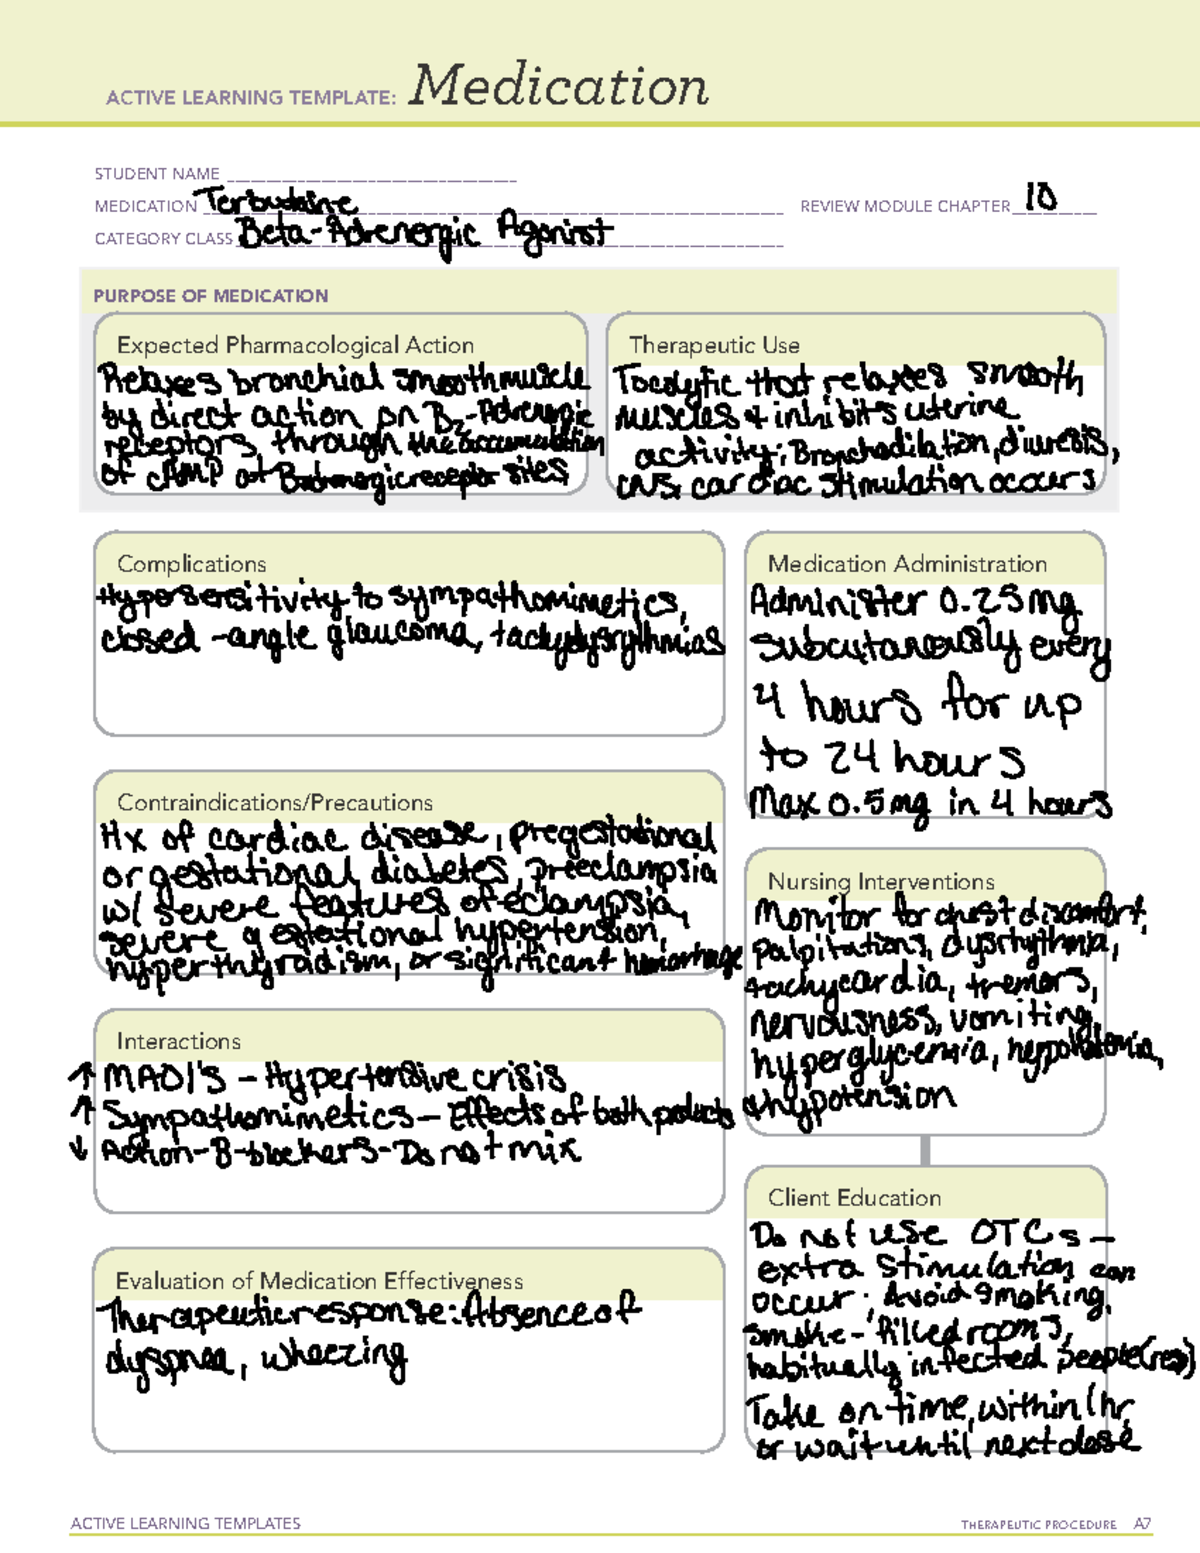 ACTIVE LEARNING TEMPLATE: Medication
STUDENT NAME
MEDICATION Terbutaline REVIEW MODULE CHAPTER 10
CATEGORY CLASS Beta-Adrenergic Agonist
PURPOSE OF MEDICATION
Expected Pharmacological Action
Relaxes bronchial smooth muscle
by direct action on B2-Adrenergic
receptors through the accumulation
of cAMP at receptor sites
Therapeutic Use
Tocolytic that relaxes smooth
muscles & inhibits uterine
activity; Bronchodilation, diuresis,
CNS, cardiac stimulation occurs
Complications
Hypersensitivity to sympathomimetics,
closed-angle glaucoma, tachydysrythmias
Contraindications/Precautions
Hx of cardiac disease, pregestational
or gestational diabetes, preeclampsia
w/ severe features of eclampsia,
severe gestational hypertension,
hyperthyradism, or significant hemorrhage
Interactions
↑ MAOI's - Hypertensive crisis
↑ Sympathomimetics - Effects of both products
↓ Action-B-blockers-Do not mix
Evaluation of Medication Effectiveness
Therapeutic response: Absence of
dyspnea, wheezing
Medication Administration
Administer 0.25mg
subcutaneously every
4 hours for up
to 24 hours
Max 0.5mg in 4 hours
Nursing Interventions
Monitor for chest discomfort,
palpitations, dysrhythmia,
tachycardia, tremors,
nervousness, vomiting,
hyperglycemia, hypokalemia,
& hypotension
Client Education
Do not use OTCs -
extra stimulation can
occur; Avoid smoking,
smoke-filled rooms,
habitually infected people (resp)
Take on time, within 1hr,
or wait until next dose
ACTIVE LEARNING TEMPLATES
THERAPEUTIC PROCEDURE A7